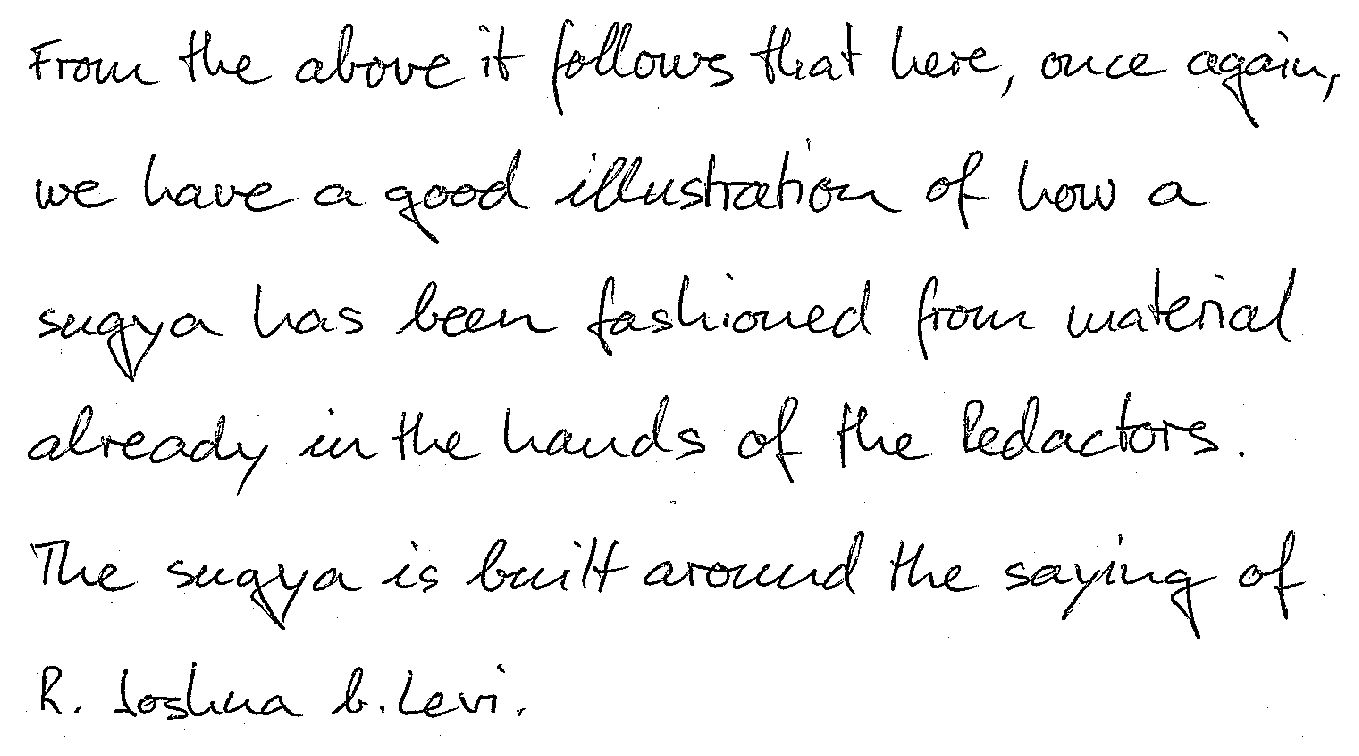 From the above it follows that here, once again,
we have a good illustration of how a
sugya has been fashioned from material
already in the hands of the Redactors.
The sugya is built around the saying of
R. Joshua b. Levi.